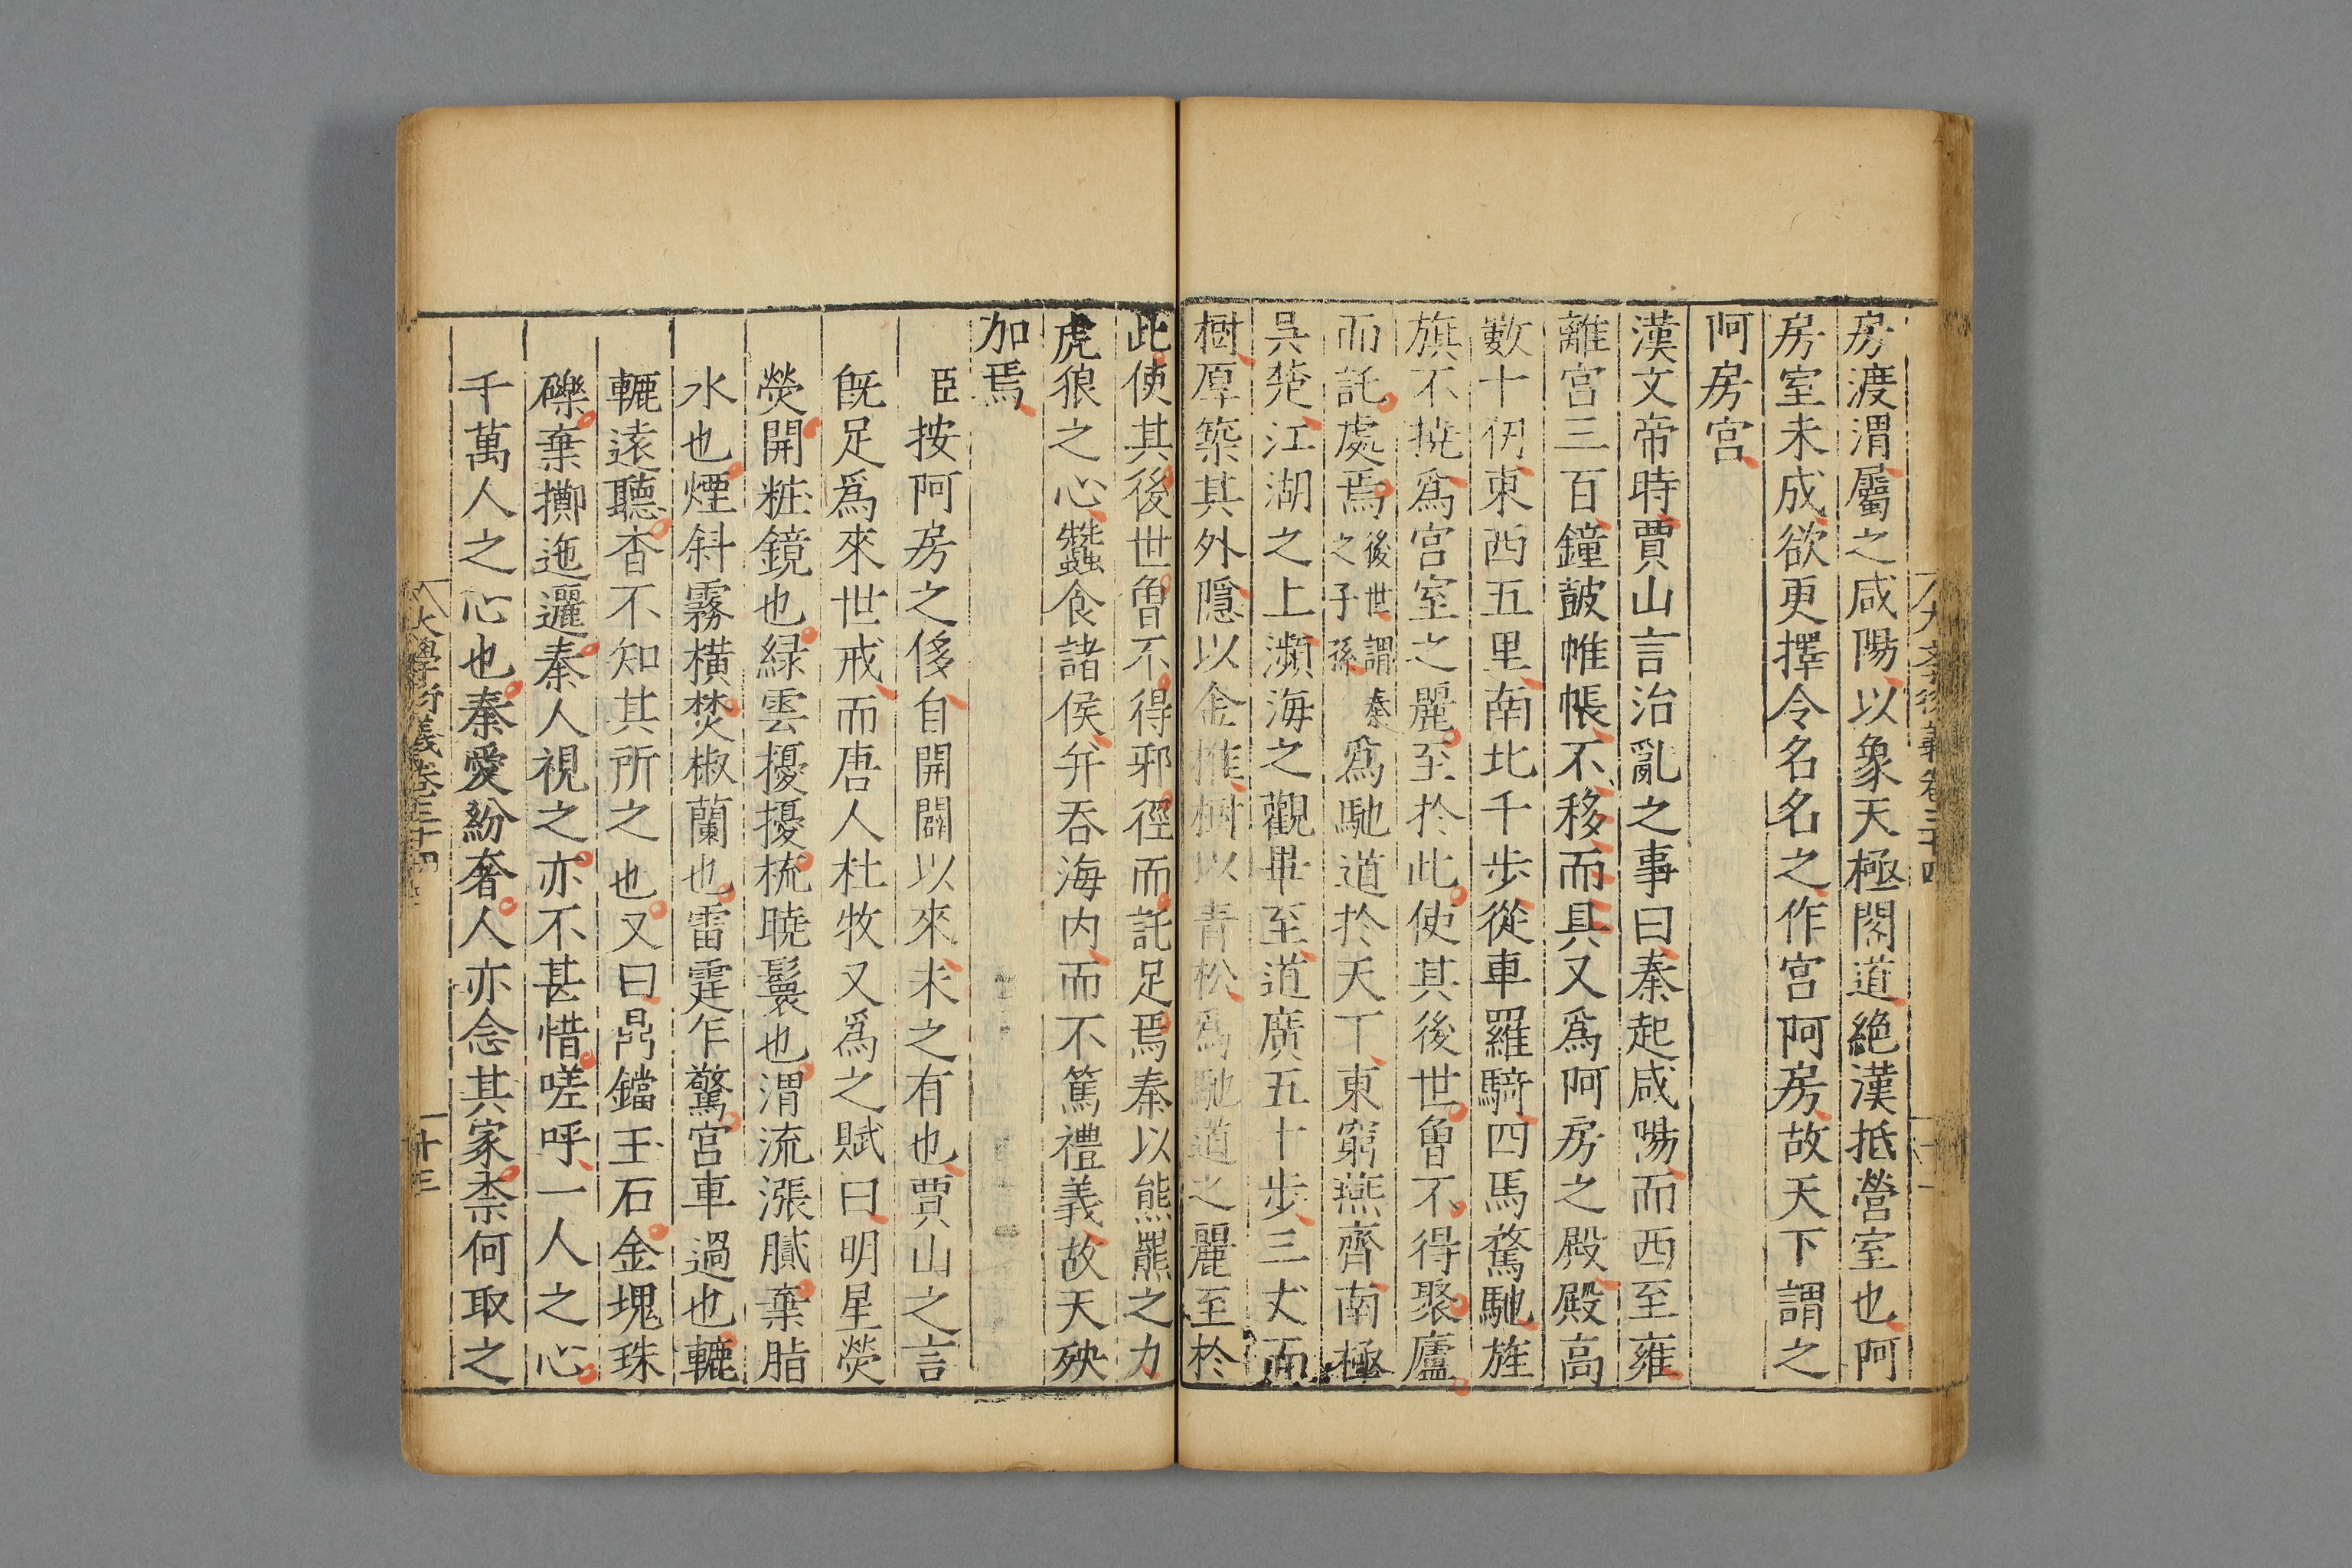 房渡渭屬之咸陽以象天極閣道絶漢抵營室也阿
房室未成欲更擇令名名之作宮阿房故天下謂之
阿房宮
漢文帝時賈山言治亂之事曰秦起咸陽而西至雍
離宮三百鐘皷帷帳不移而具又爲阿房之殿殿高
數十仞東西五里南北千步從車羅騎四馬騖馳旌
旗不撓爲宮室之麗至於此使其後世曾不得聚廬
而託處焉後世謂秦之子孫爲馳道於天下東窮燕齊南極
吳楚江湖之上瀕海之觀畢至道廣五十步三丈而
樹厚築其外隱以金椎樹以青松爲馳道之麗至於
此使其後世曾不得邪徑而託足焉秦以熊羆之力
虎狼之心蠶食諸侯并吞海内而不篤禮義故天殃
加焉
臣按阿房之侈自開闢以來未之有也賈山之言
旣足爲來世戒而唐人杜牧又爲之賦曰明星熒
熒開粧鏡也緑雲擾擾梳曉鬟也渭流漲膩棄脂
水也煙斜霧橫焚椒蘭也雷霆乍驚宮車過也轆
轆遠聽杳不知其所之也又曰鼎鐺玉石金塊珠
礫棄擲迤邐秦人視之亦不甚惜嗟呼一人之心
千萬人之心也秦愛紛奢人亦念其家柰何取之
大學衍義卷三十四
廿三